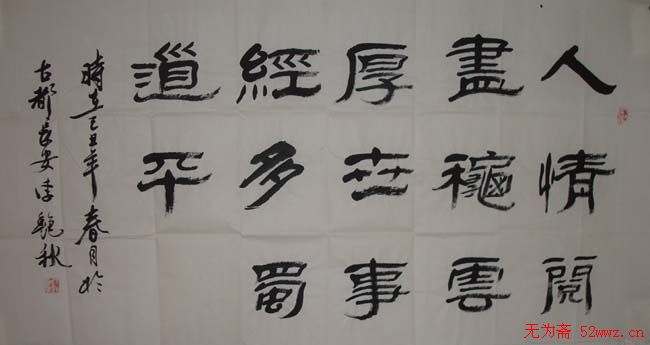 人情閱
盡龝雲
厚世事
經多蜀
道平
時在己丑年春月於
古都長安李秋
无为斋 52wwz.cn